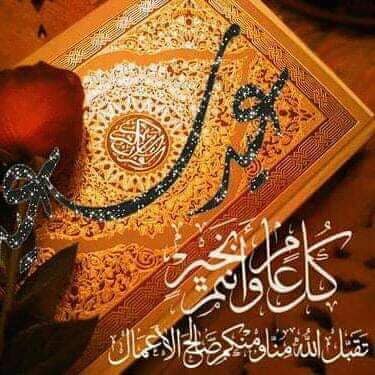 عيد
كُل عَام وأنتُم بخَيْرٍ
تَقَبَّل اللهُ مِنَّا وَمِنْكُم صَالِحَ الأَعْمَال